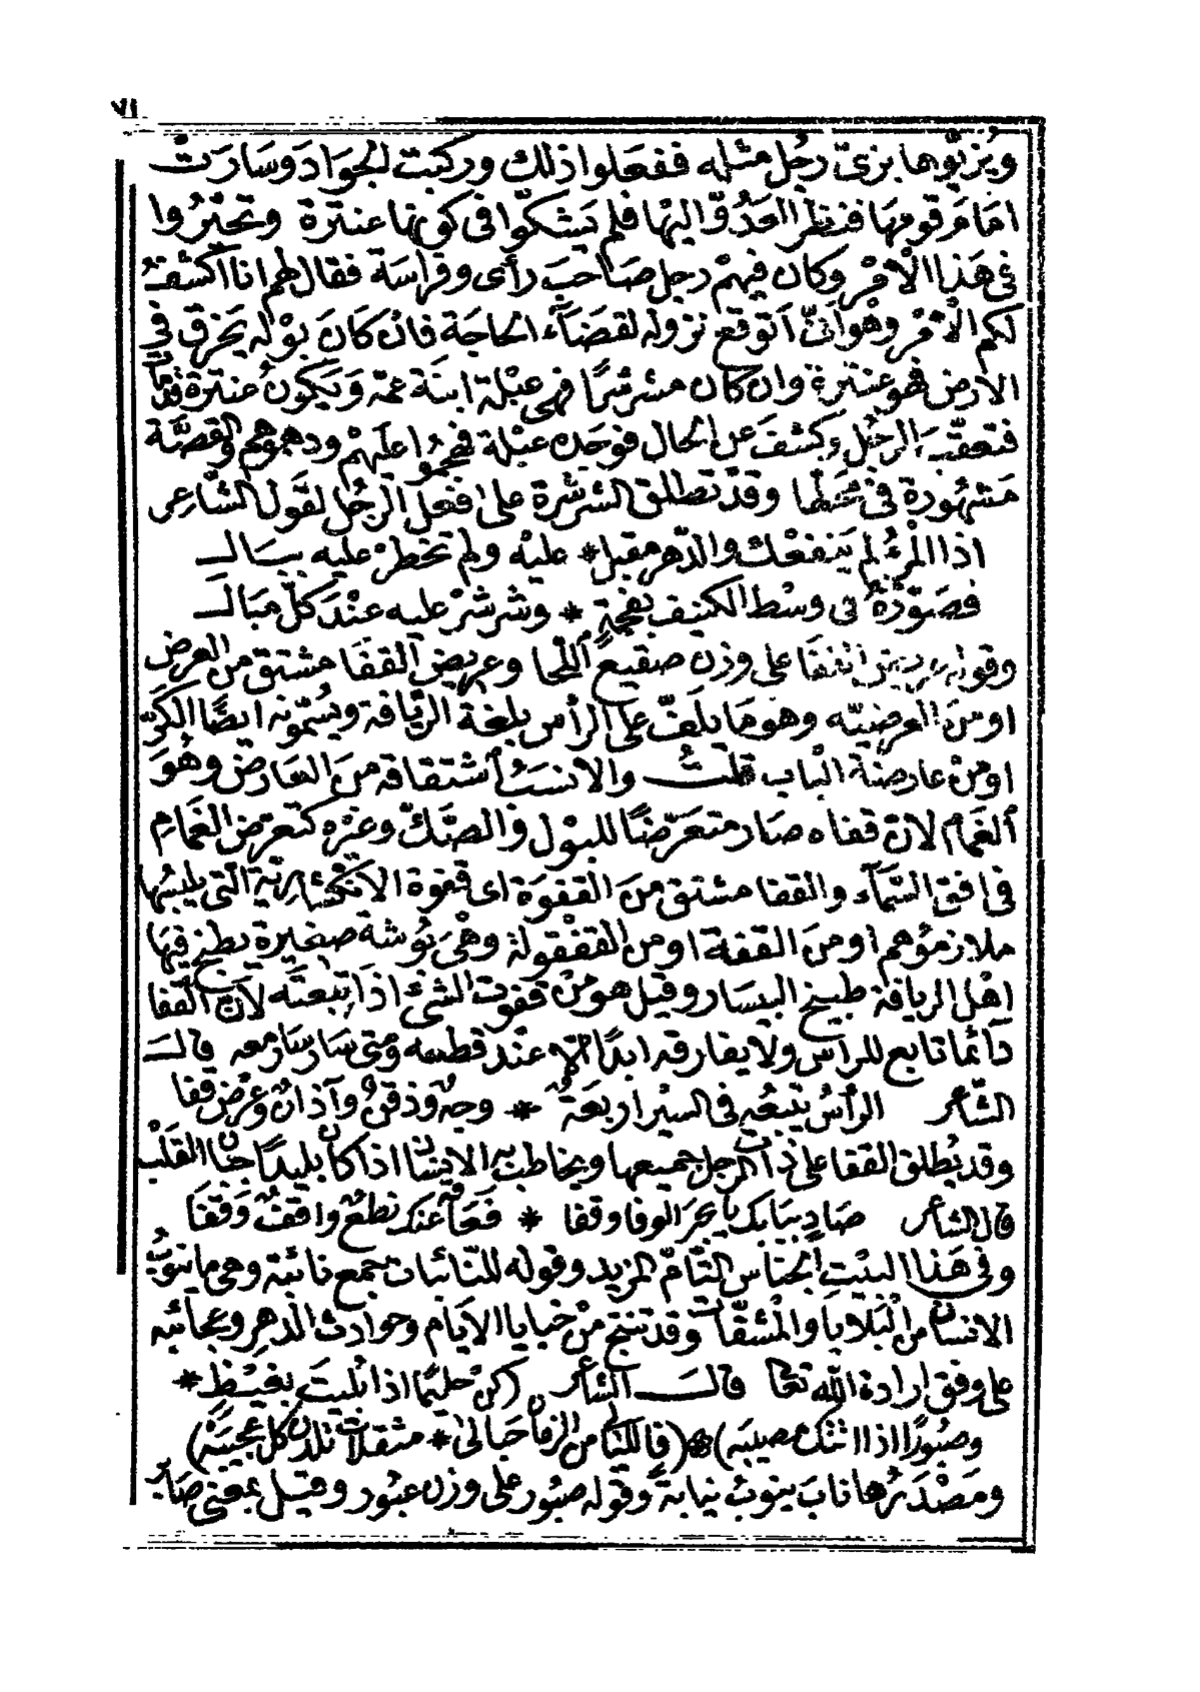 ٧١
ويُزيّوها بزيّ رجُل مثله ففعلوا ذلك وركبت الجوَاد وسَارَتْ
امَامَ قومهَا فنظر العَدُوّ اليهَا فلم يَشكّوا في كونها عنترة وتحيّرُوا
في هَذا الْامْر وكان فيهمْ رجل صَاحبَ رأى وفراسَة فقال لهم انا اكشفُ
لكم الْامْر وهْو انّى اتوقع نزوله لقضَآء الحاجَة فانْ كَانَ بَوْله يَخرق في
الارض فهو عنترة وان كان مشرشرًا فهى عبْلة ابنَة عمّه وَيكون عنترة قدمَاتَ
فتعقّبَ الرجُل وكشفَ عن الحال فوجَدَه عبْلة فهجموُا علَيهمْ ودهموهم والقصَّة
مَشهُودة في محَلها وقدْ تطلق الشرشرة علىٰ فعل الرجُل لقَول الشّاعر
اذا المرْءُ لم يَنفعْك والدّهر مقبل * عليْه ولم تخطرْ عليه ببَال
فصَوّرْهُ في وسْط الكنيف بفحْمةٍ * وشرشرْ عليه عنْدَ كلّ مبَال
وقوله عريض القفَا على وزن صقيع اللحا وعريض القفَا مشتق من العرض
اومنَ العرضيّه وهو مَا يلَفّ على الرأس بلغة الريّافة ويُسمّونه ايضًا الكَرّ
اومنْ عارضَة الباب قلتُ والانسَبُ أشتقاقه منَ العَارض وهُوَ
ألغمَام لانّ قفاه صَار متعَرّضًا للبوْل والصّكّ وغيْره كتعرّض الغَمَامِ
في افق السّمَآء والقفا مشتق منَ القفوَة اى قفوة الانكشاريّة التى يلبسُها
ملازموُهم اومنَ القفة اومن القفْقولة وهْىَ بُوشَة صغيرة يطبخ فيهَا
اهْل الريافة طبيخ البيسَار وقيل هو منْ قفوت الشئ اذَا تبعتَه لانّ القفا
دَآئمًا تابع للرأس ولا يفارقه ابدًا الّا عنْد قطعه ومتى سَار سَار معه قال
الشّاعر الرأسُ يتبعُه في السيْر اربعَةٌ * وجهٌ وذقنٌ وآذانٌ وعَرْض قفا
وقد يُطلق القفا على ذات الرجل جميعها ويخاطب به الانسَان اذا كان بليدًا جبَان القلْب
قال الشاعر صَادٍ ببَابك يا بحرَ الوفا وقفا * فَحَآ عنك نطعٌ واقفٌ وَقفَا
وفى هَذا البيْت الجنَاس التّامّ المزيد وقوله للنّائبات جمع نائبة وهى ما ينوبُ
الانسان من الْبَلايا والْمشقّات وقد تنتج منْ خبايا الايّام وحوادث الدهر وعجائبه
على وفق ارادة الله تعالى قال الشاعر (كنْ حليمًا اذا بُليتَ بغيْظٍ *
وصَبُورًا اذا اتتك مصيبَه) (فالليَالى من الزمَان حبالىٰ * مثقلات تلدن كل عَجيبَة)
ومَصْدَرُها نابَ ينوبُ نيابةً وقوله صبُور على وزن عبُور وقيل بمعنى صَابر